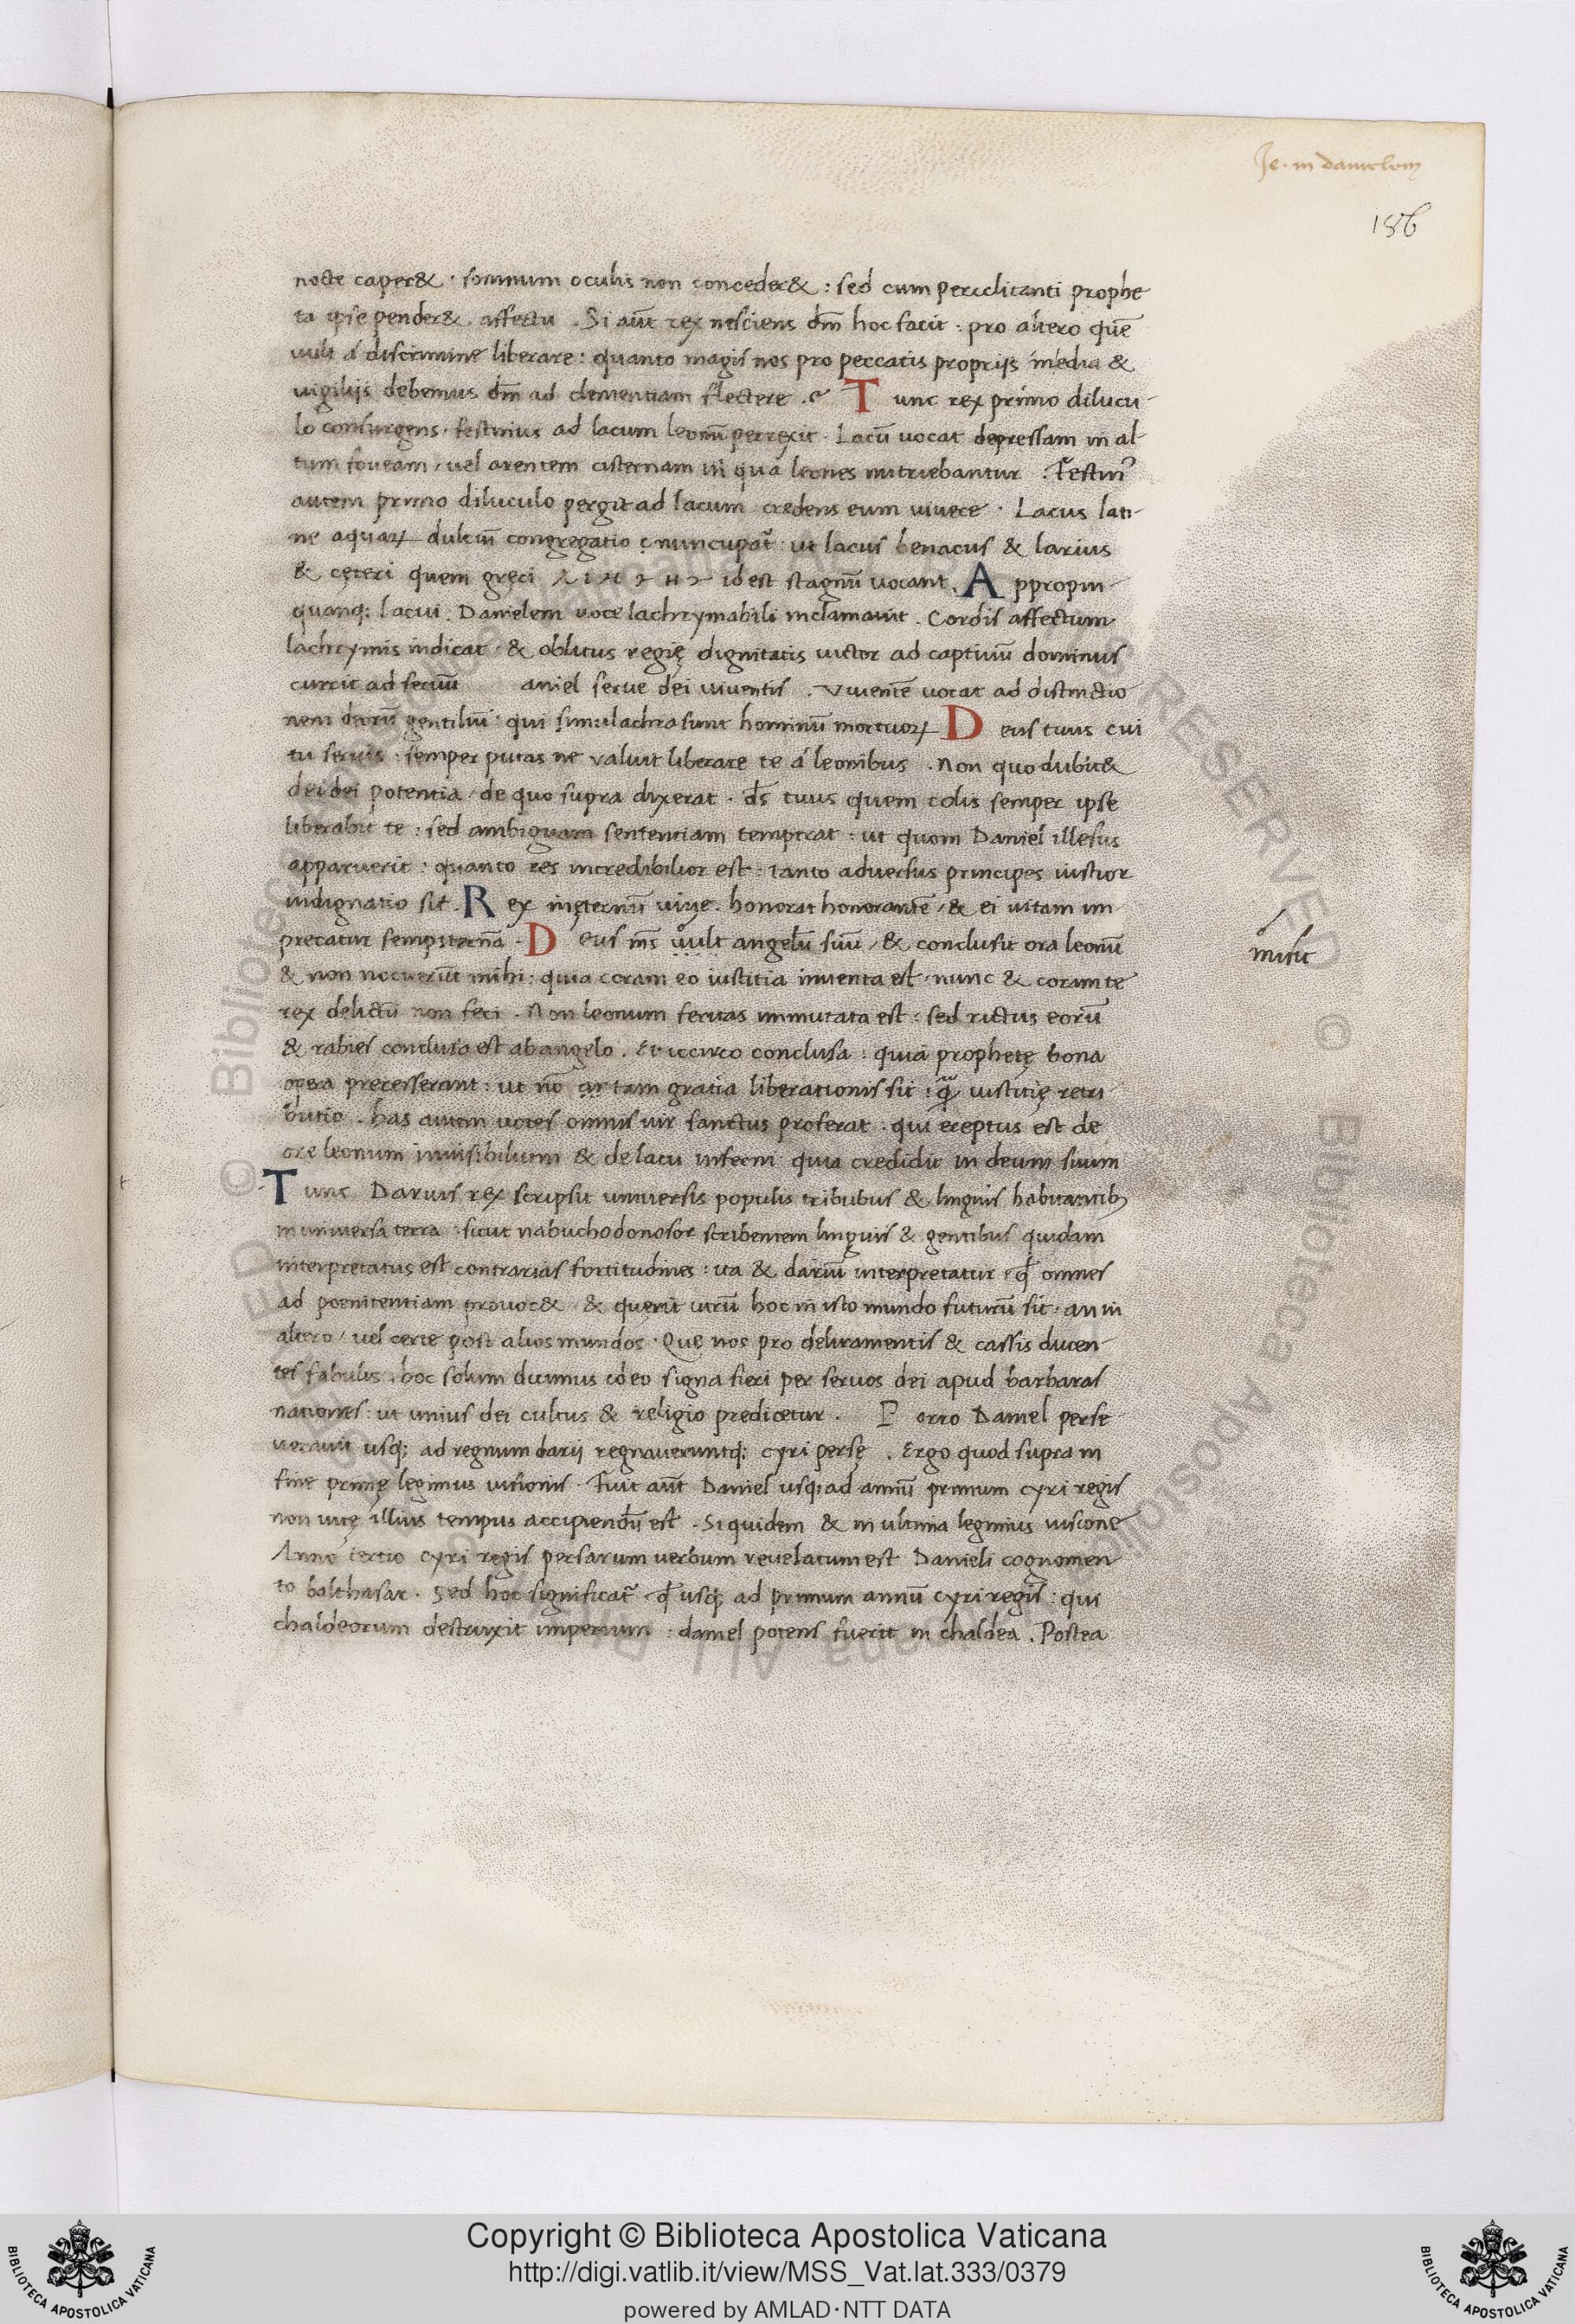 Je. in danielem
186
nocte caper& · somnum oculis non conceder& : sed cum periclitanti prophe
ta ipse pender& affectu . Si aūt rex nesciens dm̄ hoc facit : pro altero quē
uult á discrimine liberare : quanto magis nos pro peccatis proprijs inedia &
uigilijs debemus dm̄ ad clementiam flectere . Tunc rex primo dilucu-
lo consurgens · festinus ad lacum leonū perrexit · Lacū uocat depressam in al-
tum foueam / uel arentem cisternam in qua leones nutriebantur . Festin᾿
autem primo diluculo pergit ad lacum credens eum uiuere · Lacus lati-
ne aquaꝝ dulciū congregatio nuncupat᷑ : ut lacus benacus & larius
& cęteri quem gręci id est stagnū uocant . Appropin-
quanq; lacui . Danielem uoce lachrymabili inclamauit . Cordis affectum
lachrymis indicat · & oblitus regię dignitatis uictor ad captiuū dominus
currit ad seruū aniel serue dei uiuentis . Viuentē uocat ad distinctio
nem deorū gentiliū : qui simulachra sunt hominū mortuoꝝ Deus tuus cui
tu seruis · semper putas ne valuit liberare te á leonibus . Non quo dubit&
dei dei potentia / de quo supra dixerat · ds̄ tuus quem colis semper ipse
liberabit te : sed ambiguam sententiam temperat : ut quom Daniel illesus
apparuerit : quanto res incredibilior est : tanto aduersus principes iustior
indignatio sit . Rex inęternū viue . honorat honorantē / & ei uitam im-
precatur sempiternā . Deus ms̄ uult angelū suū / & conclusit ora leonū
misit
& non nocuerūt mihi : quia coram eo iustitia inuenta est · nunc & coram te
rex delictū non feci . Non leonum feritas immutata est : sed rictus eorū
& rabies conclusa est ab angelo . Et iccirco conclusa : quia prophetę bona
opera precesserant : ut nō tam gratia liberationis sit : q̄ iustitię retri
butio . has autem uoces omnis uir sanctus proferat . qui ereptus est de
ore leonum inuisibilium & de lacu inferni quia credidit in deum suum
Tunc Darius rex scripsit uniuersis populis tribubus & linguis habitantib᷒
in uniuersa terra : sicut nabuchodonosor scribentem linguis & gentibus quidam
interpretatus est contrarias fortitudines : ita & dariū interpretatur / qď omnes
ad poenitentiam prouoc& & querit utrū hoc in isto mundo futurū sit · an in
altero / uel certe post alios mundos · Quę nos pro deliramentis & cassis ducen-
tes fabulis . hoc solum dicimus ideo signa fieri per seruos dei apud barbaras
nationes : ut unius dei cultus & religio predicetur . Porro Daniel perse
uerauit usq; ad regnum darij regnaueruntq; cyri persę . Ergo quod supra in
fine primę legimus uisionis · Fuit aūt Daniel usq; ad annū primum cyri regis
non uitę illius tempus accipiendū est . Siquidem & in ultima legimus uisione
Anno tertio cyri regis persarum uerbum reuelatum est Danieli cognomen
to balthasar . Sed hoc significat᷑ qď usq; ad primum annū cyri regis : qui
chaldeorum destruxit imperium : daniel potens fuerit in chaldea . Postea
Copyright © Biblioteca Apostolica Vaticana
http://digi.vatlib.it/view/MSS_Vat.lat.333/0379
powered by AMLAD·NTT DATA
BIBLIOTECA APOSTOLICA VATICANA
BIBLIOTECA APOSTOLICA VATICANA